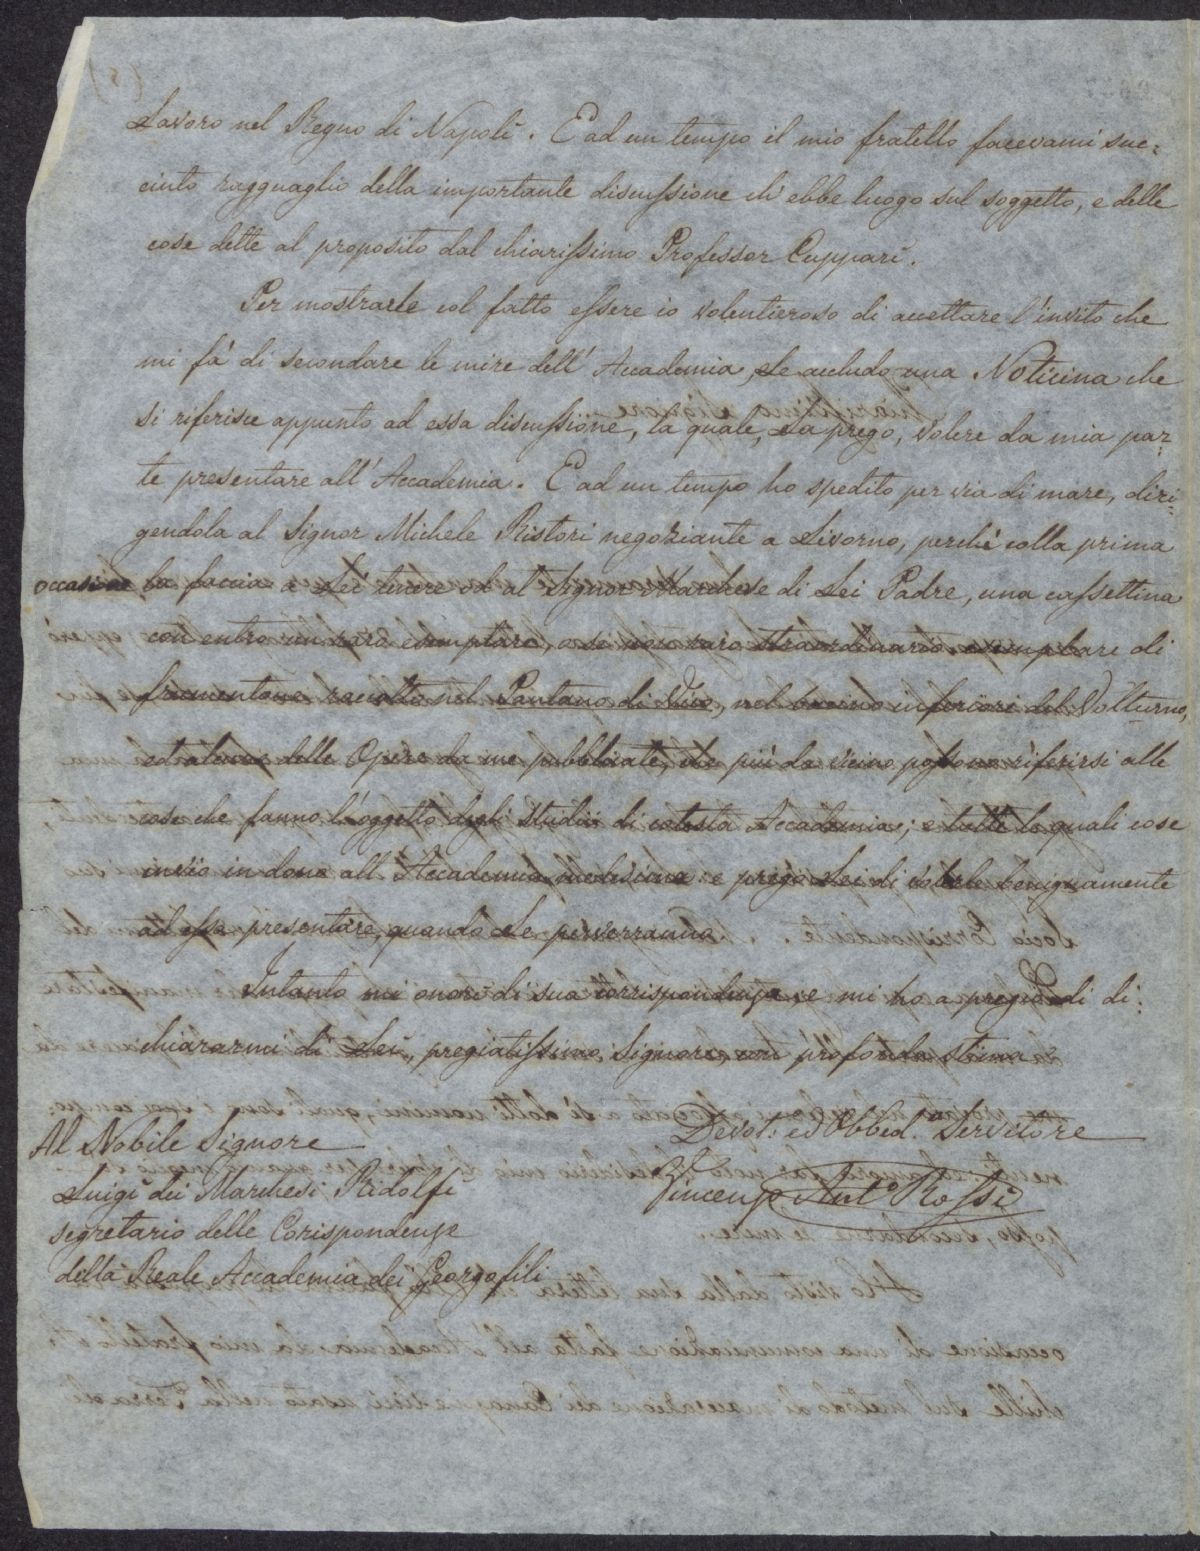 Lavoro nel Regno di Napoli. E ad un tempo il mio fratello facevami suc=
cinto ragguaglio della importante discussione ch'ebbe luogo sul soggetto, e delle
cose dette al proposito dal chiarissimo Professor Cuppari.
Per mostrarle col fatto essere io volentieroso di accettare l'invito che
mi fa' di secondare le mire dell'Accademia, Le accludo una Noticina che
si riferisce appunto ad essa discussione, la quale, La prego, volere da mia par=
te presentare all'Accademia. E ad un tempo ho spedito per via di mare, diri=
gendola al Signor Michele Ristori negoziante a Livorno, perchè colla prima
occasione la faccia a Lei tenere od al Signor Marchese di Lei Padre, una cassettina
con entro un raro esemplare, o se non raro straordinario esemplare di
frumentone raccolto nel Pantano di Vico, nel bacino inferiore del Volturno,
ed alcune delle Opere da me pubblicate, che più da vicino possono riferirsi alle
cose che fanno l'oggetto degli studii di cotesta Accademia; e tutte le quali cose
invio in dono all'Accademia medesima: e prego Lei di volerle benignamente
ad essa presentare, quando Le perverranno.
Intanto mi onori di sua corrispondenza, e mi ho a pregio di di=
chiararmi di Lei, pregiatissimo Signore, con profonda stima
Devot: ed Obbed. Servitore
Vincenzo Ant. Rossi
Al Nobile Signore
Luigi dei Marchesi Ridolfi
segretario delle Corispondenze
della Reale Accademia dei Georgofili